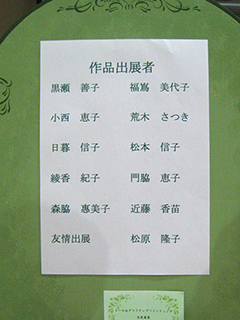 作品出展者
黒瀬　善子　　福嶌　美代子
小西　恵子　　荒木　さつき
日暮　信子　　松本　信子
綾香　紀子　　門脇　恵子
森脇　惠美子　近藤　香苗
友情出展　　　松原　隆子